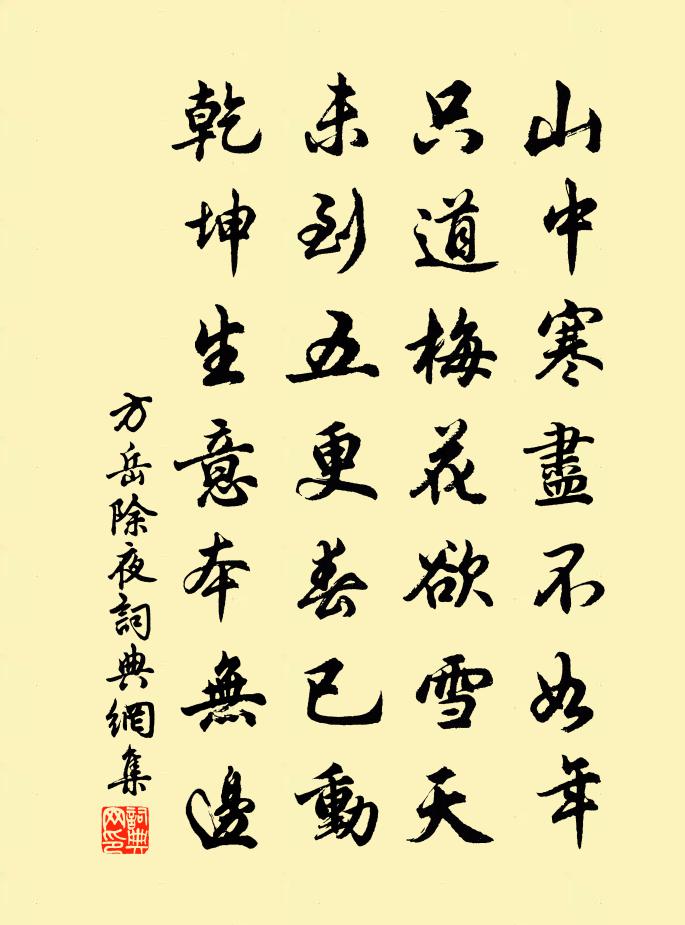 山中寒盡不如年
只道梅花欲雪天
未到五更春已動
乾坤生意本無邊
方岳除夜詞典網集
詞典網印